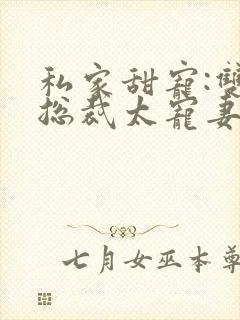 私家甜寵:雙
总裁太寵妻
七月女巫本尊